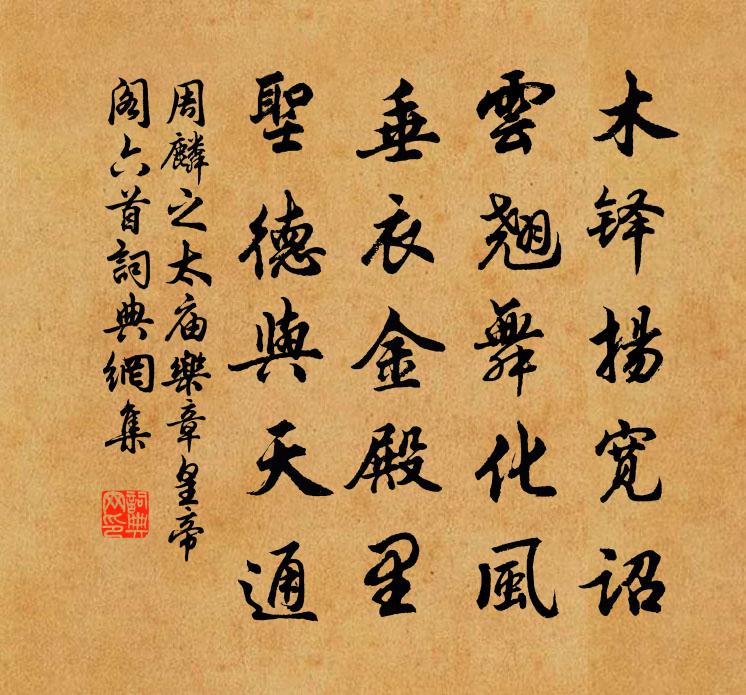 木铎揚寬詔
雲翹舞化風
垂衣金殿里
聖德與天通
周麟之太庙樂章皇帝
阁六首詞典網集
詞典網印